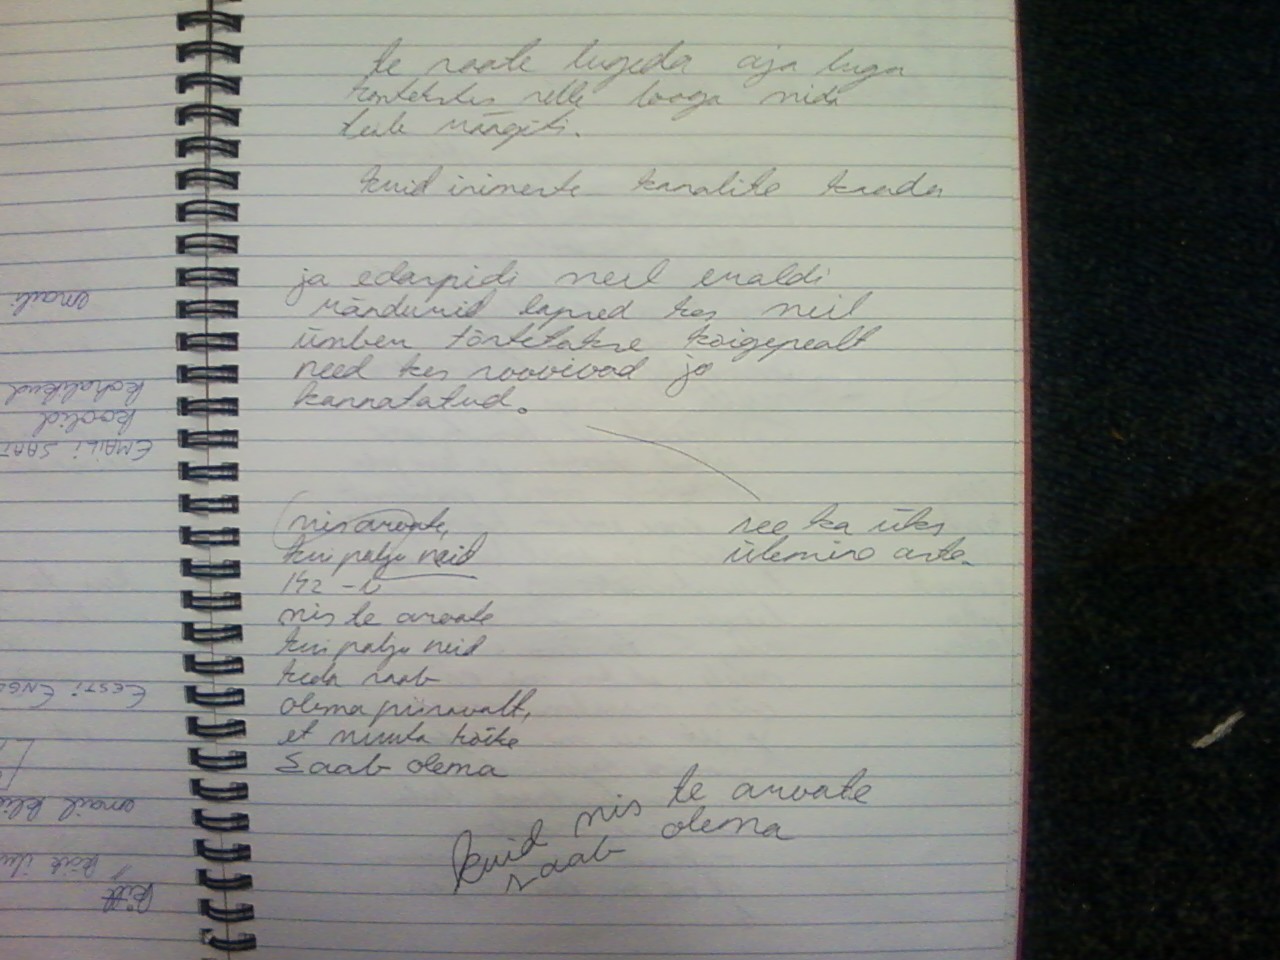 te saate lugeda aja luga
kontekstis selle looga mida
teile räägiti.
kuid inimeste kanalite kaudu
ja edaspidi neil eraldi
sündunid lapsed kes neil
ümber tõstetakse kõigepealt
need kes soovivad ja
kannatatud.
see ka üks
ülemino aste.
mis arvate,
kui palju neid
142 -
mis te arvate
kui palju neid
keda saab
olema piisavalt,
et muuta kõike
Saab olema
kuid mis te arvate
saab olema
emaili
kohalikud
koolid
EMAILI SAAT
EESTI ENG
email
kõik